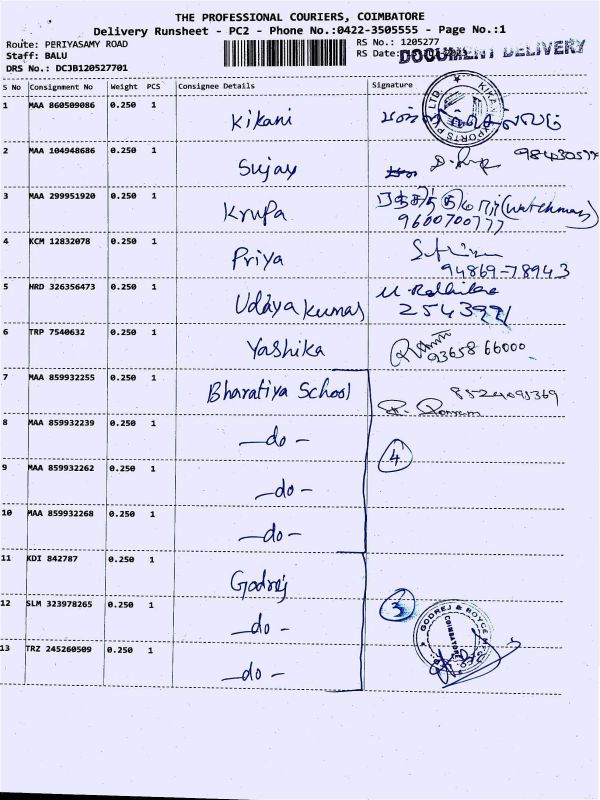 THE PROFESSIONAL COURIERS, COIMBATORE
Delivery Runsheet - PC2 - Phone No.:0422-3505555 - Page No.:1
Route: PERIYASAMY ROAD
Staff: BALU
DRS No.: DCJB120527701
RS No.: 1205277
RS Date:
DOCUMENT DELIVERY
S No Consignment No Weight PCS Consignee Details Signature
1 MAA 860509086 0.250 1 Kikani
2 MAA 104948686 0.250 1 Sujay
3 MAA 299951920 0.250 1 Krupa (watchman)
9600700777
4 KCM 12832078 0.250 1 Priya
94869-78943
5 HRD 326356473 0.250 1 Udaya kumar
6 TRP 7540632 0.250 1 Yashika
93658 66000
7 MAA 859932255 0.250 1 Bharatiya School
8 MAA 859932239 0.250 1 -do- 4
9 MAA 859932262 0.250 1 -do-
10 MAA 859932268 0.250 1 -do-
11 KDI 842787 0.250 1 Godrej
12 SLM 323978265 0.250 1 -do- 3
GODREJ & BOYCE
COIMBATORE
13 TRZ 245260509 0.250 1 -do-